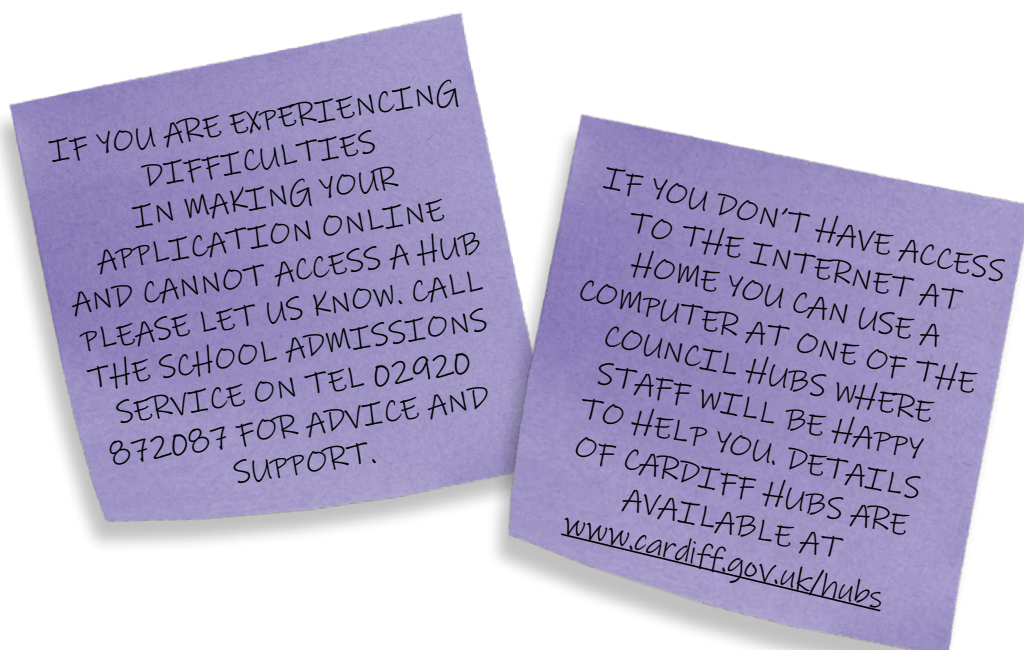 IF YOU ARE EXPERIENCING
DIFFICULTIES
IN MAKING YOUR
APPLICATION ONLINE
AND CANNOT ACCESS A HUB
PLEASE LET US KNOW. CALL
THE SCHOOL ADMISSIONS
SERVICE ON TEL 02920
872087 FOR ADVICE AND
SUPPORT.
IF YOU DON'T HAVE ACCESS
TO THE INTERNET AT
HOME YOU CAN USE A
COMPUTER AT ONE OF THE
COUNCIL HUBS WHERE
STAFF WILL BE HAPPY
TO HELP YOU. DETAILS
OF CARDIFF HUBS ARE
AVAILABLE AT
www.cardiff.gov.uk/hubs